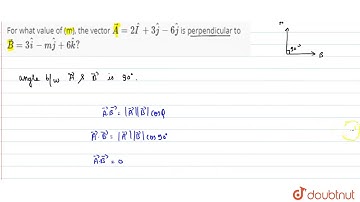 For what value of (m), the vector A⃗ = 2Î + 3ĵ − 6ĵ is perpendicular to
B⃗ = 3î − mĵ + 6k̂?
90°
B
angle b/w A⃗ & B⃗ is 90°.
A⃗·B⃗ = |A⃗||B⃗| cosθ
A⃗·B⃗ = |A⃗||B⃗| cos90°
A⃗·B⃗ = 0
doubtnut